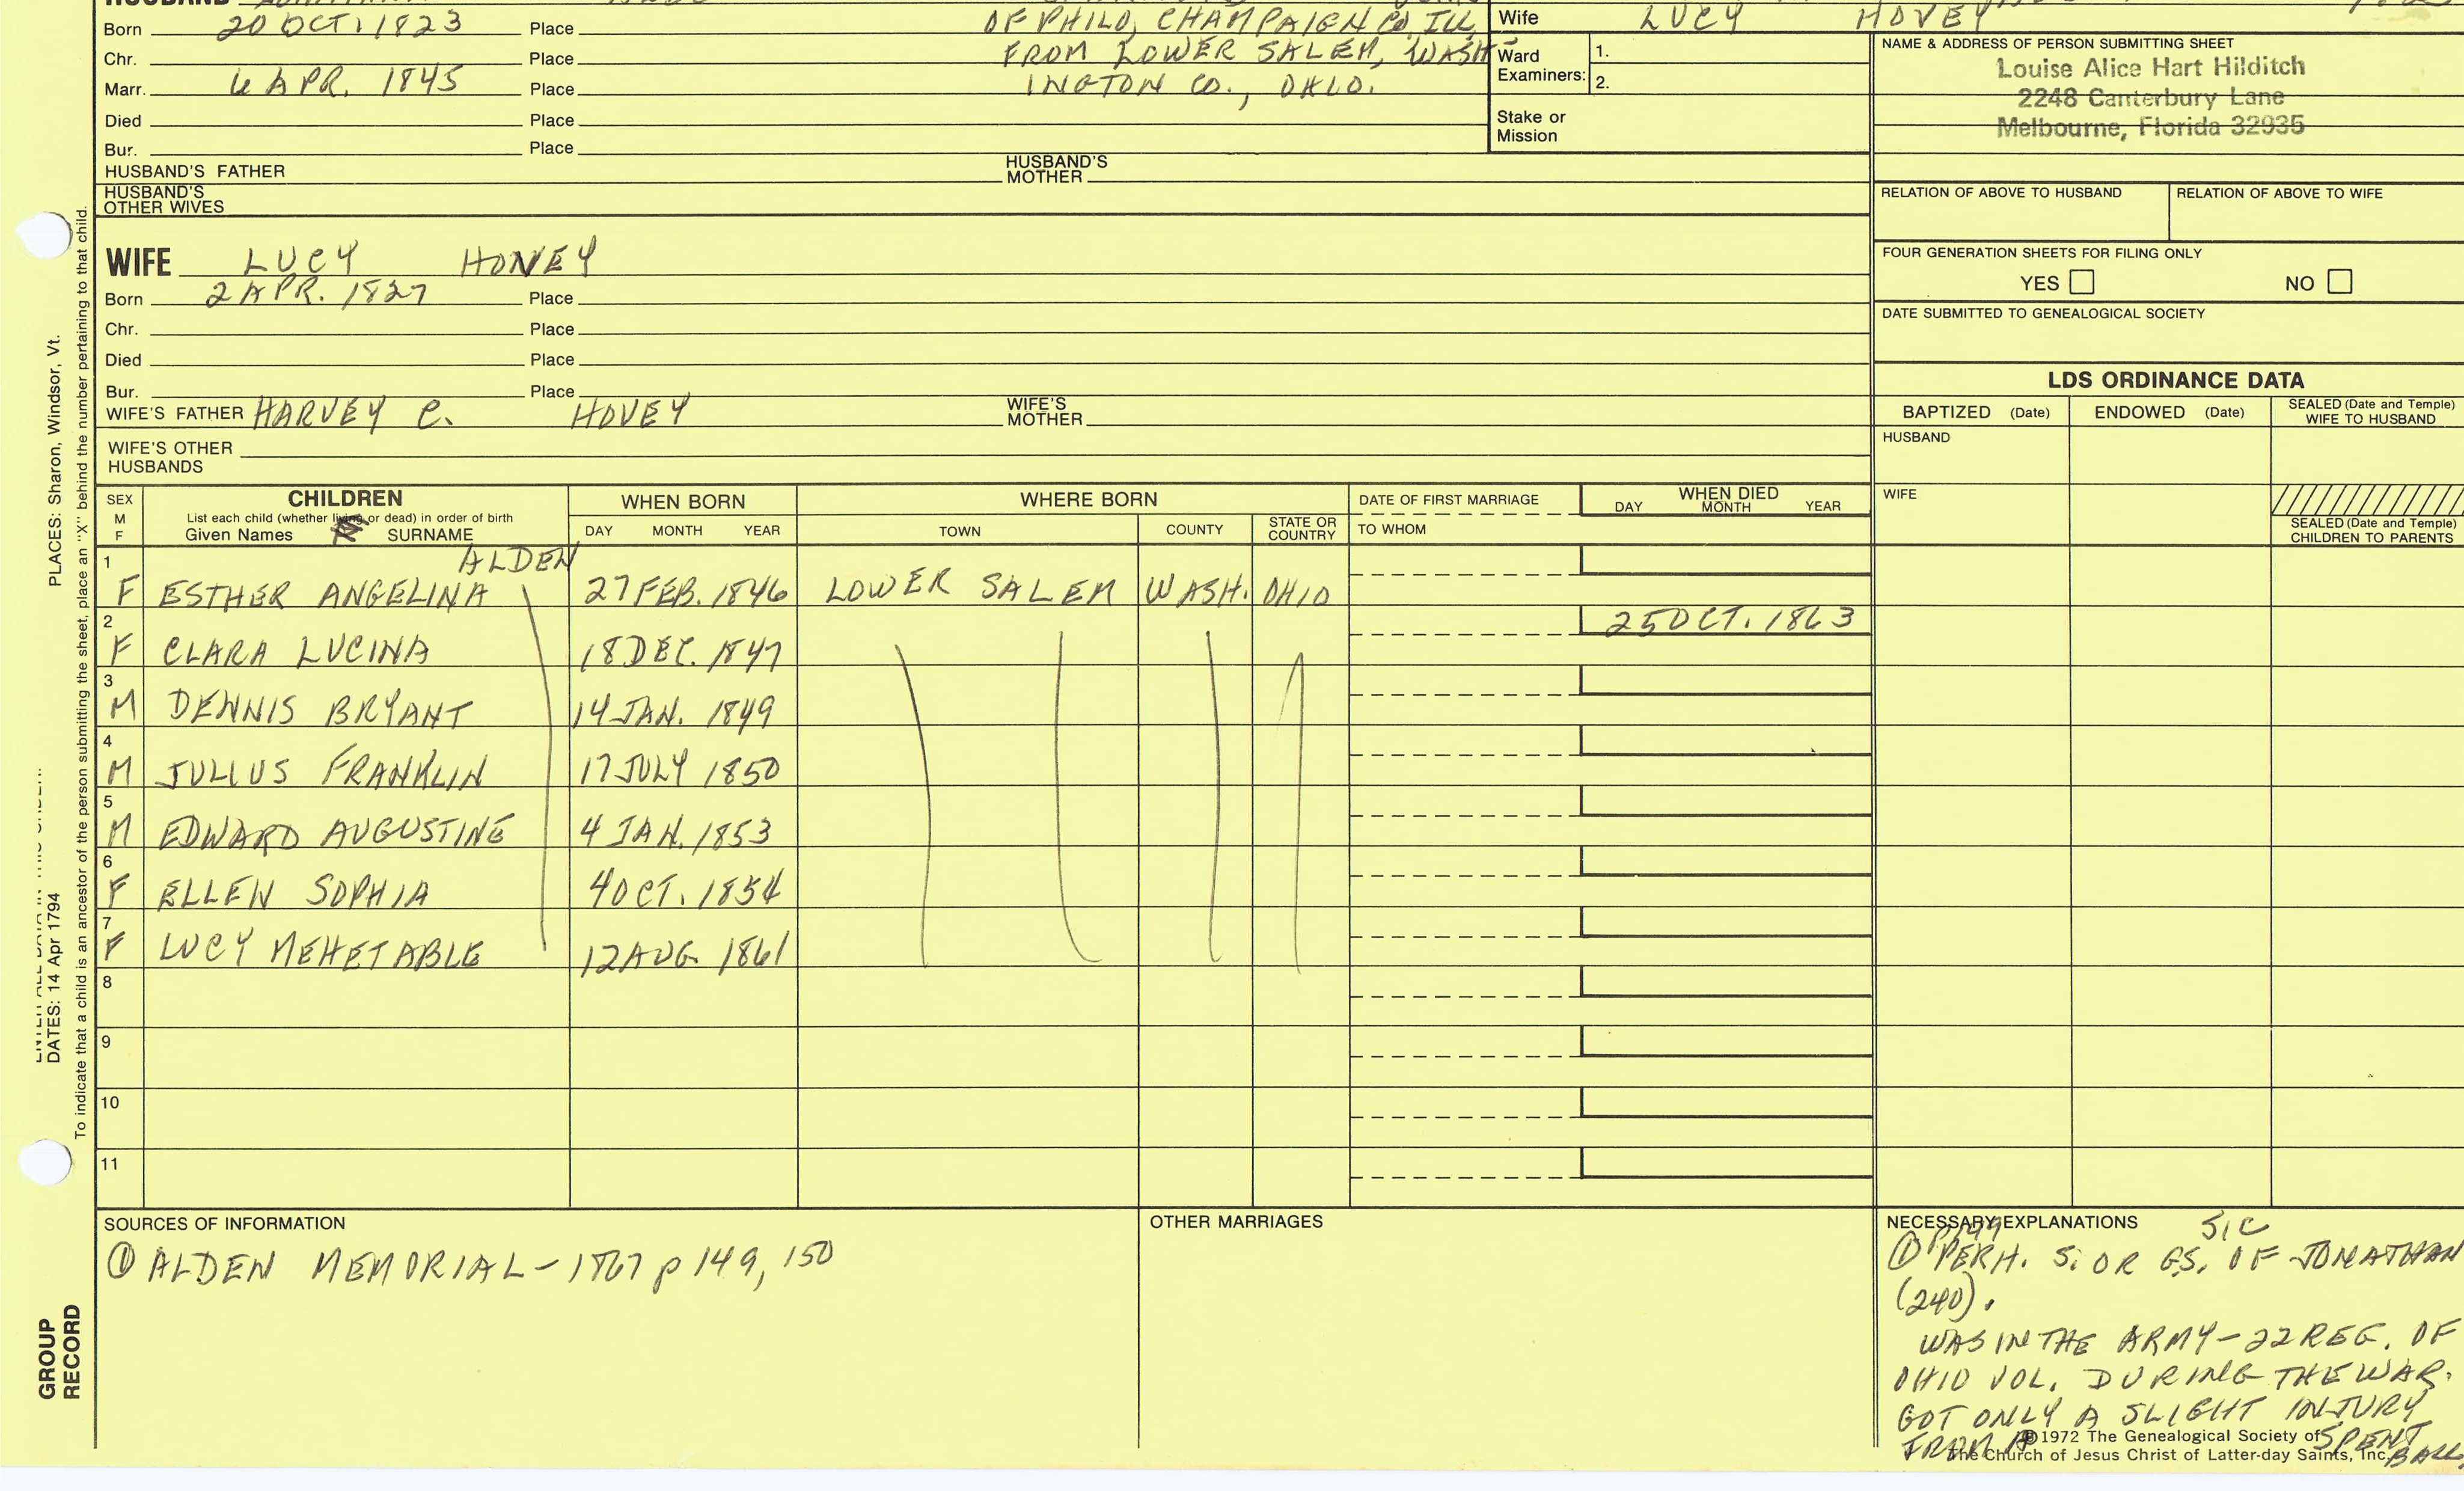 HUSBAND
Born 20 OCT. 1823 Place OF PHILO, CHAMPAIGN CO. ILL.
Chr. Place FROM LOWER SALEM, WASH-
Marr. 6 APR. 1845 Place INGTON CO., OHIO.
Died Place
Bur. Place
HUSBAND'S FATHER HUSBAND'S MOTHER
HUSBAND'S OTHER WIVES
Wife LUCY HOVEY
Ward Examiners: 1.
2.
Stake or Mission
NAME & ADDRESS OF PERSON SUBMITTING SHEET
Louise Alice Hart Hilditch
2248 Canterbury Lane
Melbourne, Florida 32935
RELATION OF ABOVE TO HUSBAND RELATION OF ABOVE TO WIFE
FOUR GENERATION SHEETS FOR FILING ONLY
YES NO
DATE SUBMITTED TO GENEALOGICAL SOCIETY
WIFE LUCY HOVEY
Born 2 APR. 1827 Place
Chr. Place
Died Place
Bur. Place
WIFE'S FATHER HARVEY C. HOVEY WIFE'S MOTHER
WIFE'S OTHER HUSBANDS
LDS ORDINANCE DATA
BAPTIZED (Date) ENDOWED (Date) SEALED (Date and Temple) WIFE TO HUSBAND
HUSBAND
WIFE
SEALED (Date and Temple) CHILDREN TO PARENTS
SEX M F
CHILDREN
List each child (whether living or dead) in order of birth
Given Names SURNAME
WHEN BORN
DAY MONTH YEAR
WHERE BORN
TOWN COUNTY STATE OR COUNTRY
DATE OF FIRST MARRIAGE
TO WHOM
WHEN DIED
DAY MONTH YEAR
1 F ESTHER ANGELINA ALDEN 27 FEB. 1846 LOWER SALEM WASH. OHIO
2 F CLARA LUCINA 18 DEC. 1847 25 OCT. 1863
3 M DENNIS BRYANT 14 JAN. 1849
4 M JULIUS FRANKLIN 17 JULY 1850
5 M EDWARD AUGUSTINE 4 JAN. 1853
6 F ELLEN SOPHIA 4 OCT. 1854
7 F LUCY MEHETABLE 12 AUG 1861
8
9
10
11
SOURCES OF INFORMATION
① ALDEN MEMORIAL - 1867 p 149, 150
OTHER MARRIAGES
NECESSARY EXPLANATIONS
P149 SIC
① PERH. S. OR GS. OF JONATHAN
(240).
WAS IN THE ARMY - 22 REG. OF
OHIO VOL. DURING THE WAR.
GOT ONLY A SLIGHT INJURY
FROM A SPENT BALL
©1972 The Genealogical Society of
The Church of Jesus Christ of Latter-day Saints, Inc.
PLACES: Sharon, Windsor, Vt.
DATES: 14 Apr 1794
To indicate that a child is an ancestor of the person submitting the sheet, place an "X" behind the number pertaining to that child.
GROUP
RECORD